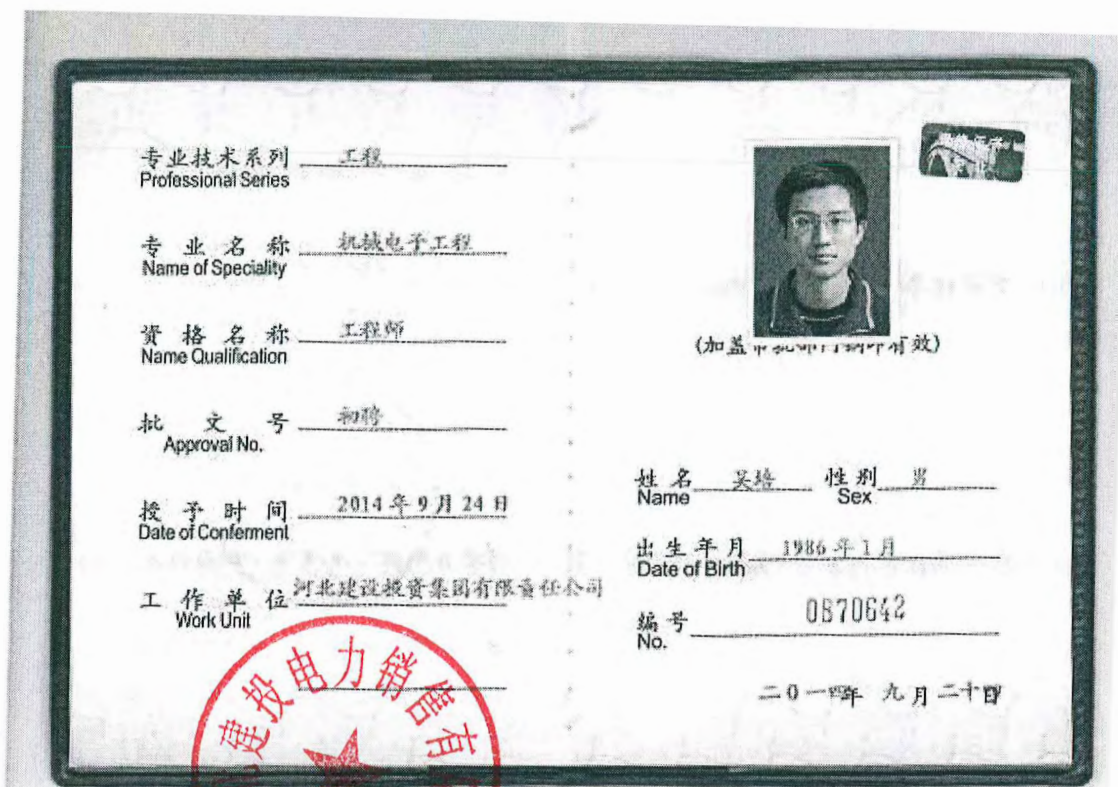 专业技术系列 工程
Professional Series
专业名称 机械电子工程
Name of Speciality
资格名称 工程师
Name Qualification
批文号 初聘
Approval No.
授予时间 2014年9月24日
Date of Conferment
工作单位 河北建设投资集团有限责任公司
Work Unit
建投电力销售有
(加盖 有效)
姓名 吴培 性别 男
Name Sex
出生年月 1986年1月
Date of Birth
编号 0B70642
No.
二0一四年 九月二十 日